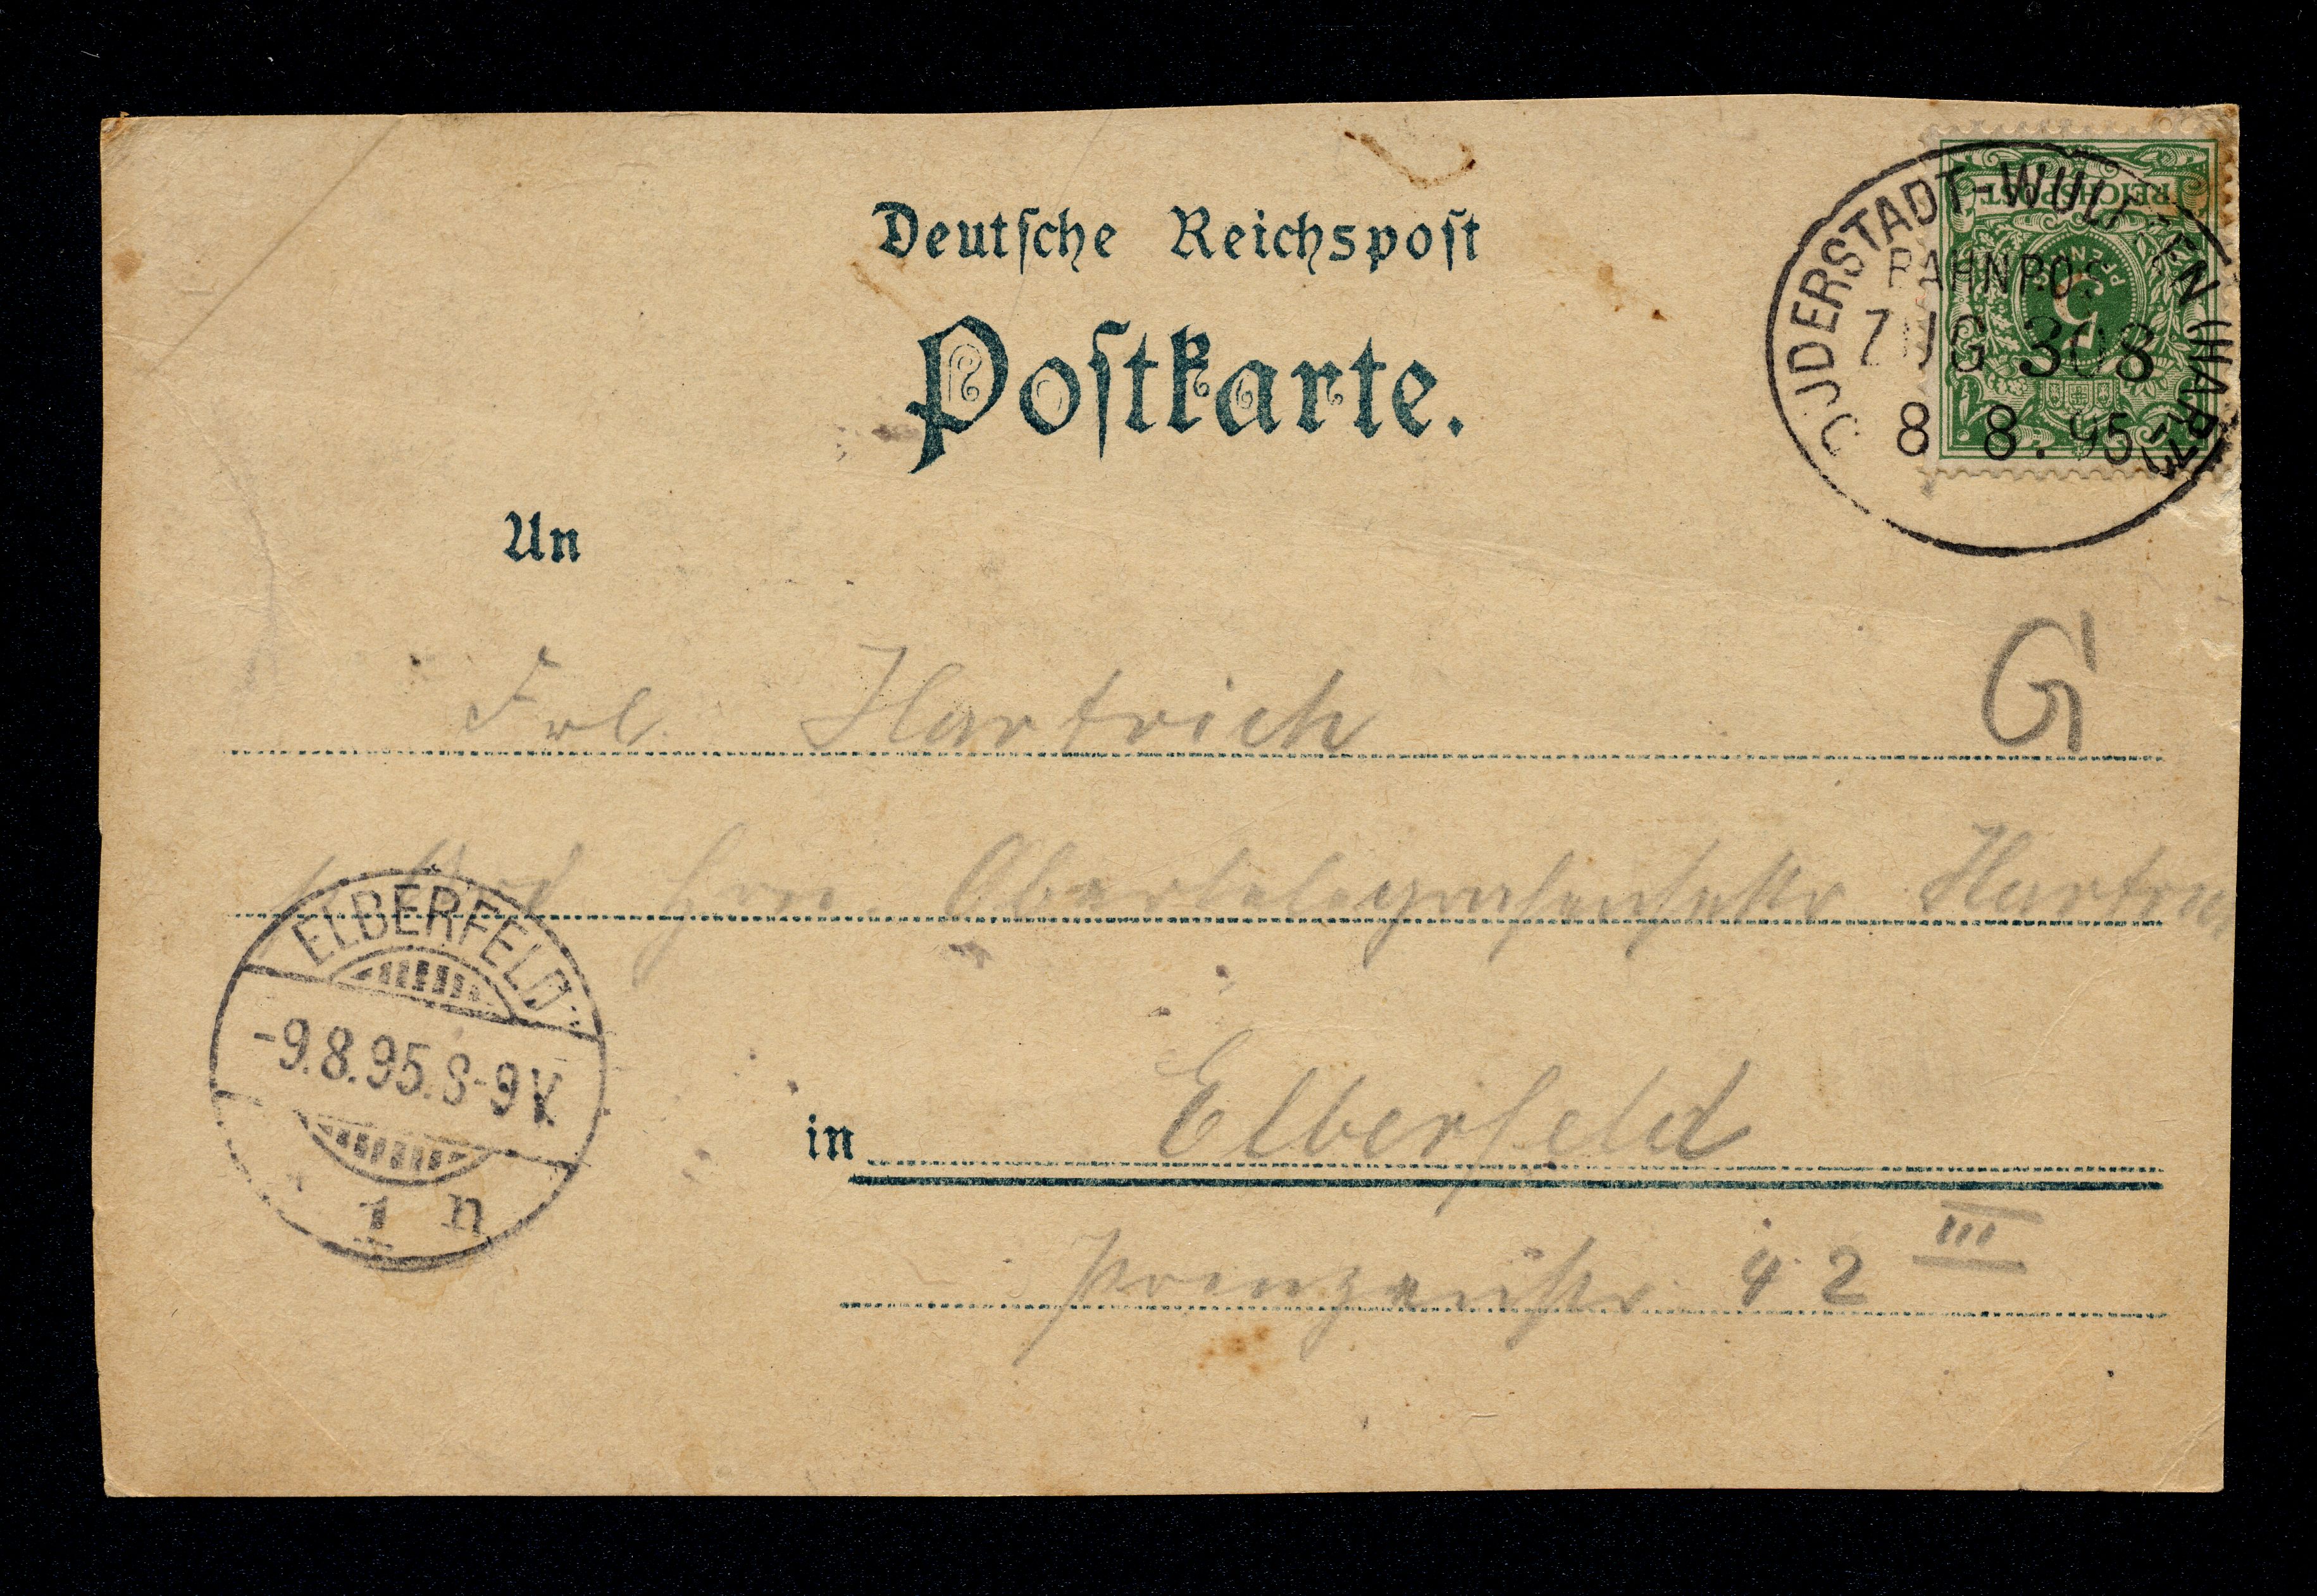 Deutsche Reichspost
Postkarte.
REICHSPOST
5
DUDERSTADT-WULFTEN (HARZ)
BAHNPOST
ZUG 308
8 8. 95
An
G
Frl. Hartrich
Hrn. Obertelegrafensekr
ELBERFELD
-9.8.95.8-9V.
1 n
in Elberfeld
Prinzenstr. 42 III